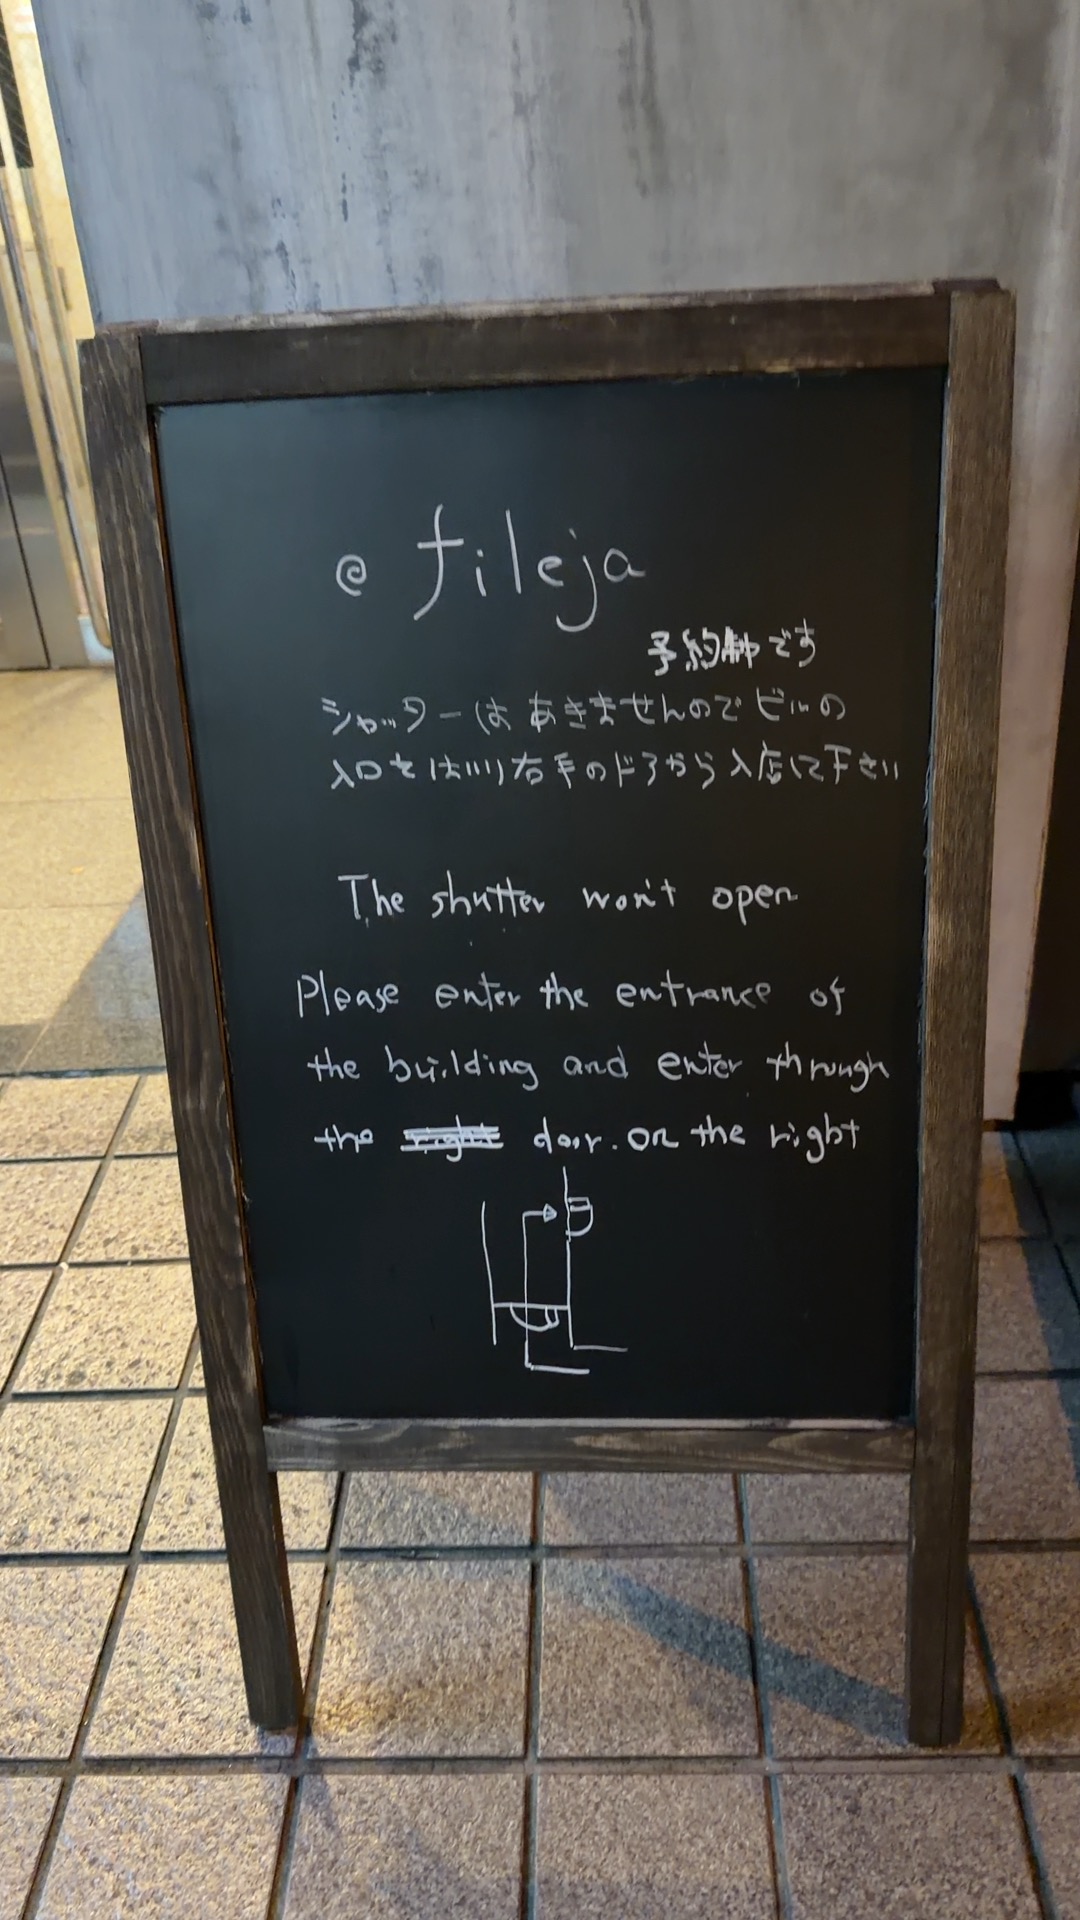 @ fileja
予約制です
シャッターはあきませんのでビルの
入口をはいり右手のドアから入店に下さい
The shutter won't open
Please enter the entrance of
the building and enter through
the right door. on the right